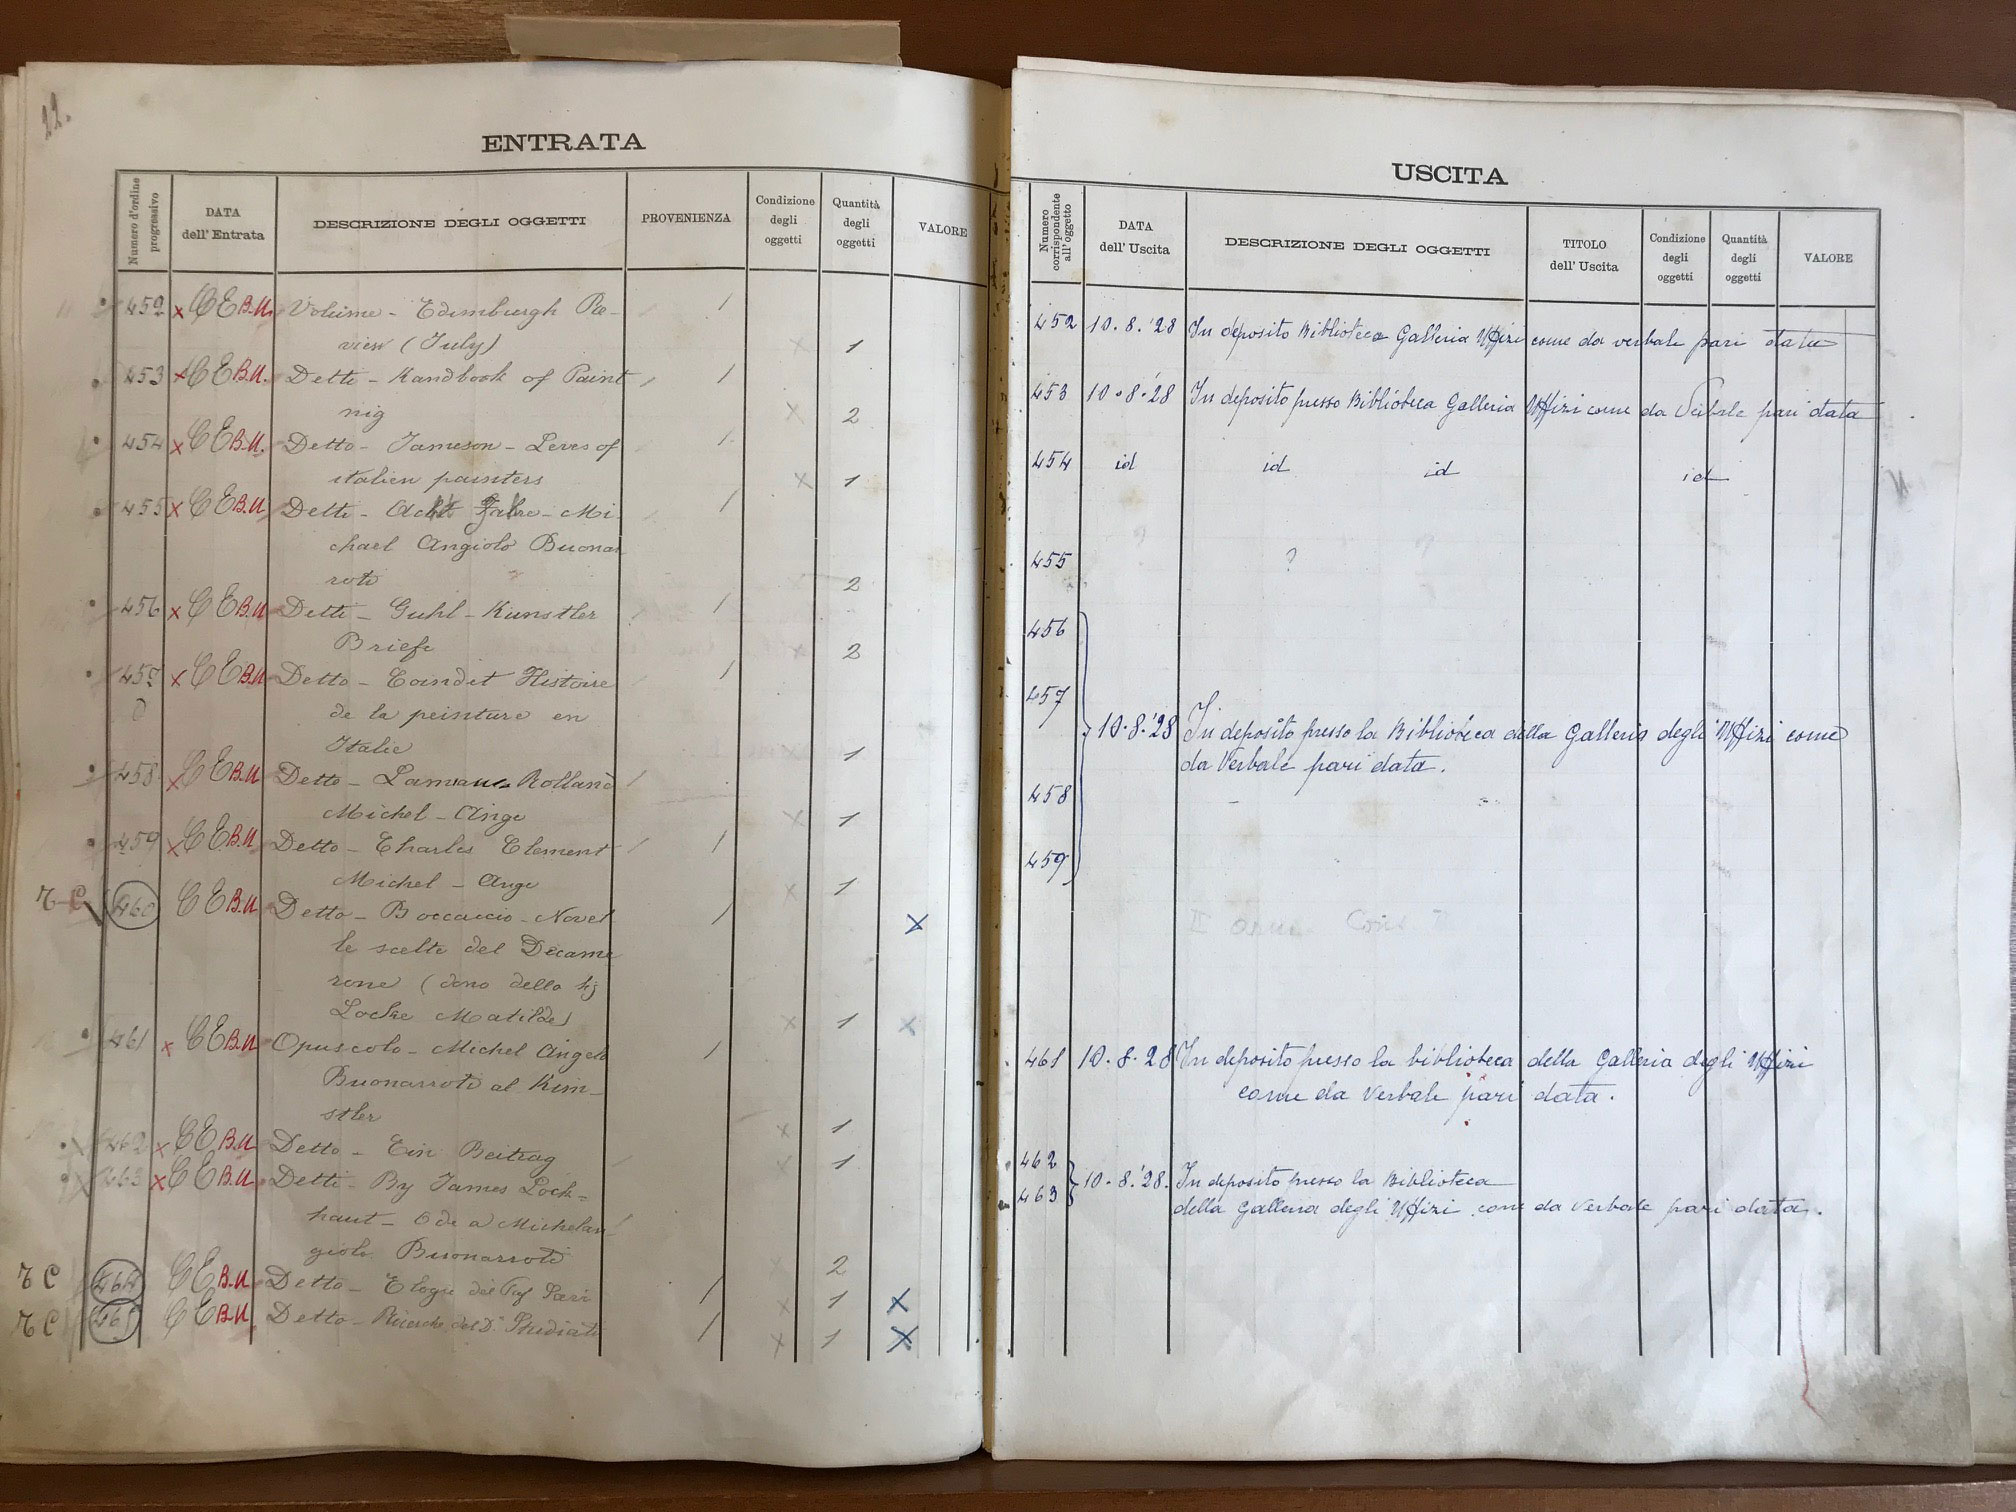 22.
ENTRATA
Numero d'ordine progressivo
DATA dell' Entrata
DESCRIZIONE DEGLI OGGETTI
PROVENIENZA
Condizione degli oggetti
Quantità degli oggetti
VALORE
452 x CE B.U. Volume - Edimburgh Re-
view (July) 1
453 x CE B.U. Detti - Handbook of Paint
nig 2
454 x CE B.U. Detto - Jameson - Leves of
italien painters 1
455 x CE B.U. Detti - Acht Jahre - Mi
chael Angiolo Buonar
roti 2
456 x CE B.U. Detti - Guhl - Kunstler
Briefe 2
457 x CE B.U. Detto - Coindet Histoire
de la peinture en
Italie 1
458 x CE B.U. Detto - Rolland
Michel - Ange 1
459 x CE B.U. Detto - Charles Clement
Michel - Ange 1
T C 460 CE B.U. Detto - Boccaccio - Novel
le scelte del Decame
rone (dono della
Locke Matilde) 1 x
461 x CE B.U. Opuscolo - Michel Angelo
Buonarroti al Kim-
stler 1
462 x CE B.U. Detto - Ein Beitrag 1
463 x CE B.U. Detti - By James Lock=
haut - Ode a Michelan
giolo Buonarroti 2
T C 464 CE B.U. Detto - Elogu del 1 x
T C 465 CE B.U. Detto - Ricerche del Dr Studiati 1 x
USCITA
Numero corrispondente all' oggetto
DATA dell' Uscita
DESCRIZIONE DEGLI OGGETTI
TITOLO dell' Uscita
Condizione degli oggetti
Quantità degli oggetti
VALORE
452 10.8.'28 In deposito Biblioteca Galleria Uffizi come da verbale pari data
453 10.8.'28 In deposito presso Biblioteca Galleria Uffizi come da Verbale pari data
454 id id id id
455 ?
456
457
10.8.'28 In deposito presso la Biblioteca della Galleria degli Uffizi come
da Verbale pari data.
458
459
461 10.8.28 In deposito presso la biblioteca della Galleria degli Uffizi
come da Verbale pari data.
462
463 10.8.'28. In deposito presso la Biblioteca
della Galleria degli Uffizi come da Verbale pari data.